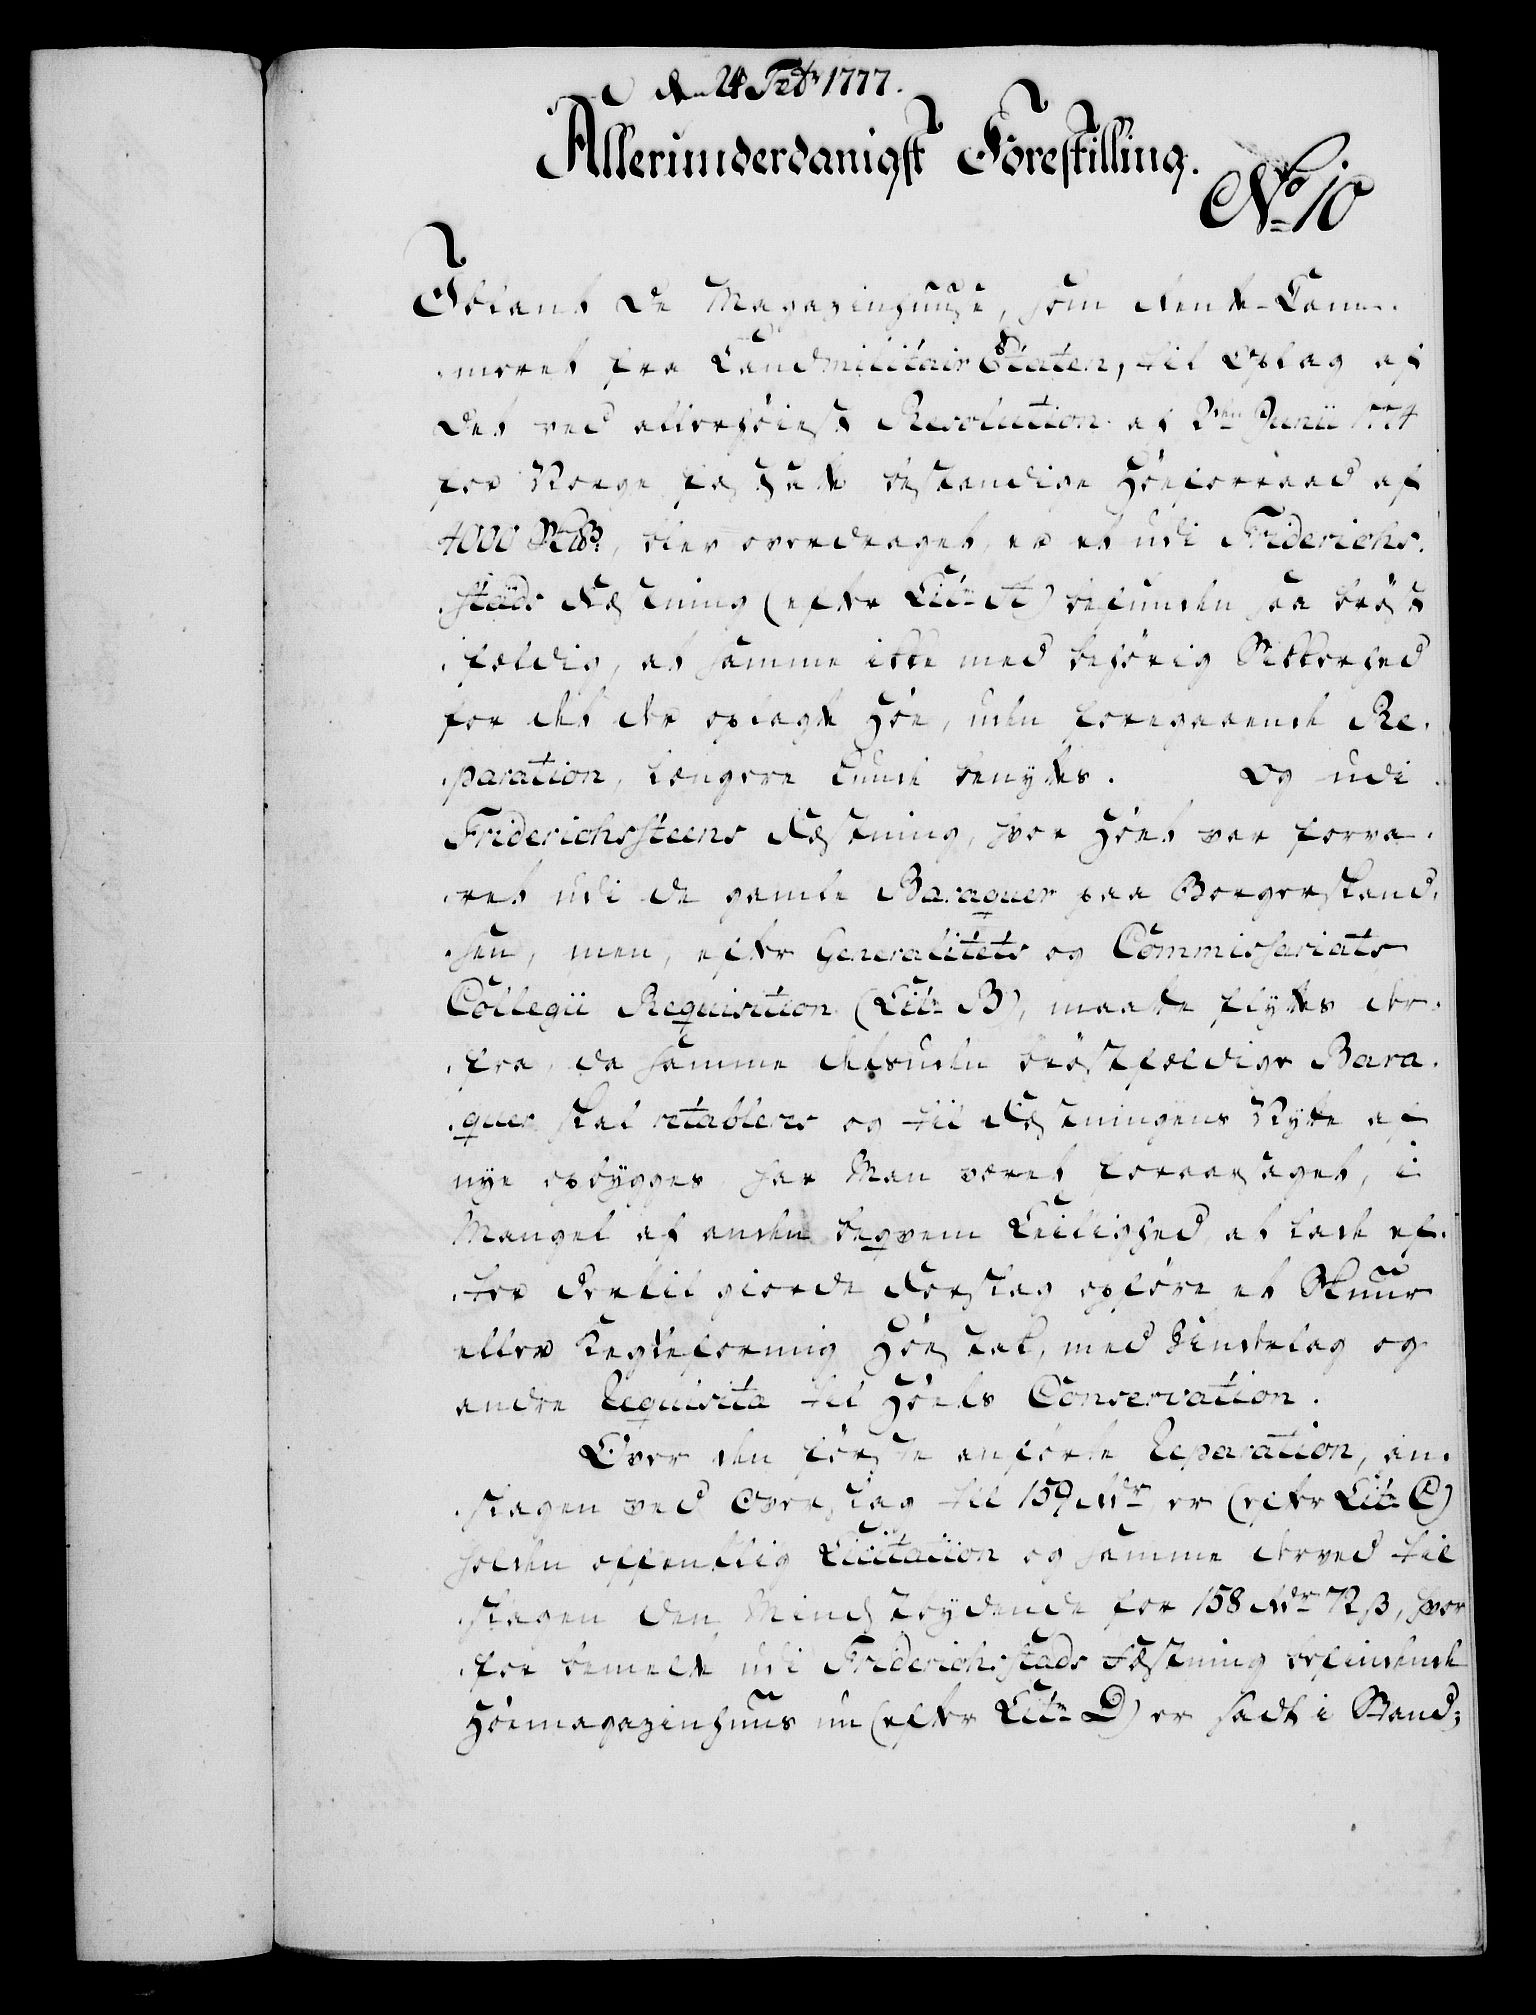 d. 24 Febr 1777.
Allerunderdanigst Forestilling.
No 10
Iblant de Magazinhuuse, som Rente-Cam-
meret fra Landmilitair Etaten, til Oplag af
det ved allerhöiest Resolution af 2den Junii 1774
for Norge fastsatte bestandige Höeforraad af
4000 Sk℔, blev overdraget, er et udi Friderichs-
stads Fæstning (efter Litr A) befunden saa bröst-
fældig, at samme ikke med behörig Sikkerhed
for det der oplagte Höe, uden foregaaende Re-
paration, længere kunde benyttes. Og udi
Friderichssteens Fæstning, hvor Höet var forva-
ret udi de gamle Baraquer paa Borgerskand-
sen, men, efter Generalitets og Commissariats
Collegii Requisition (Litr B), maatte flyttes der-
fra, da samme desuden bröstfældige Bara-
quer skal retableres og til Fæstningens Nytte af
nye opbygges har Man været foraarsaget, i
Mangel af anden beqvem Leilighed, at lade ef-
ter dertil giorde Forslag opföre et Skuur
eller Kegleformig Höestak, med Underlag og
andre Requisita til Höets Conservation.
Over den förste anförte Reparation, an-
slagen ved Overslag til 159 Rdr er (efter Litr C)
holden offentlig Licitation og samme derved til-
slagen den Mindstbydende for 158 Rdr 72 ß, hvor-
for bemelte udi Friderichsstads Fæstning befindende
Höemagazinhuus nu (efter Litr D) er sadt i Stand;